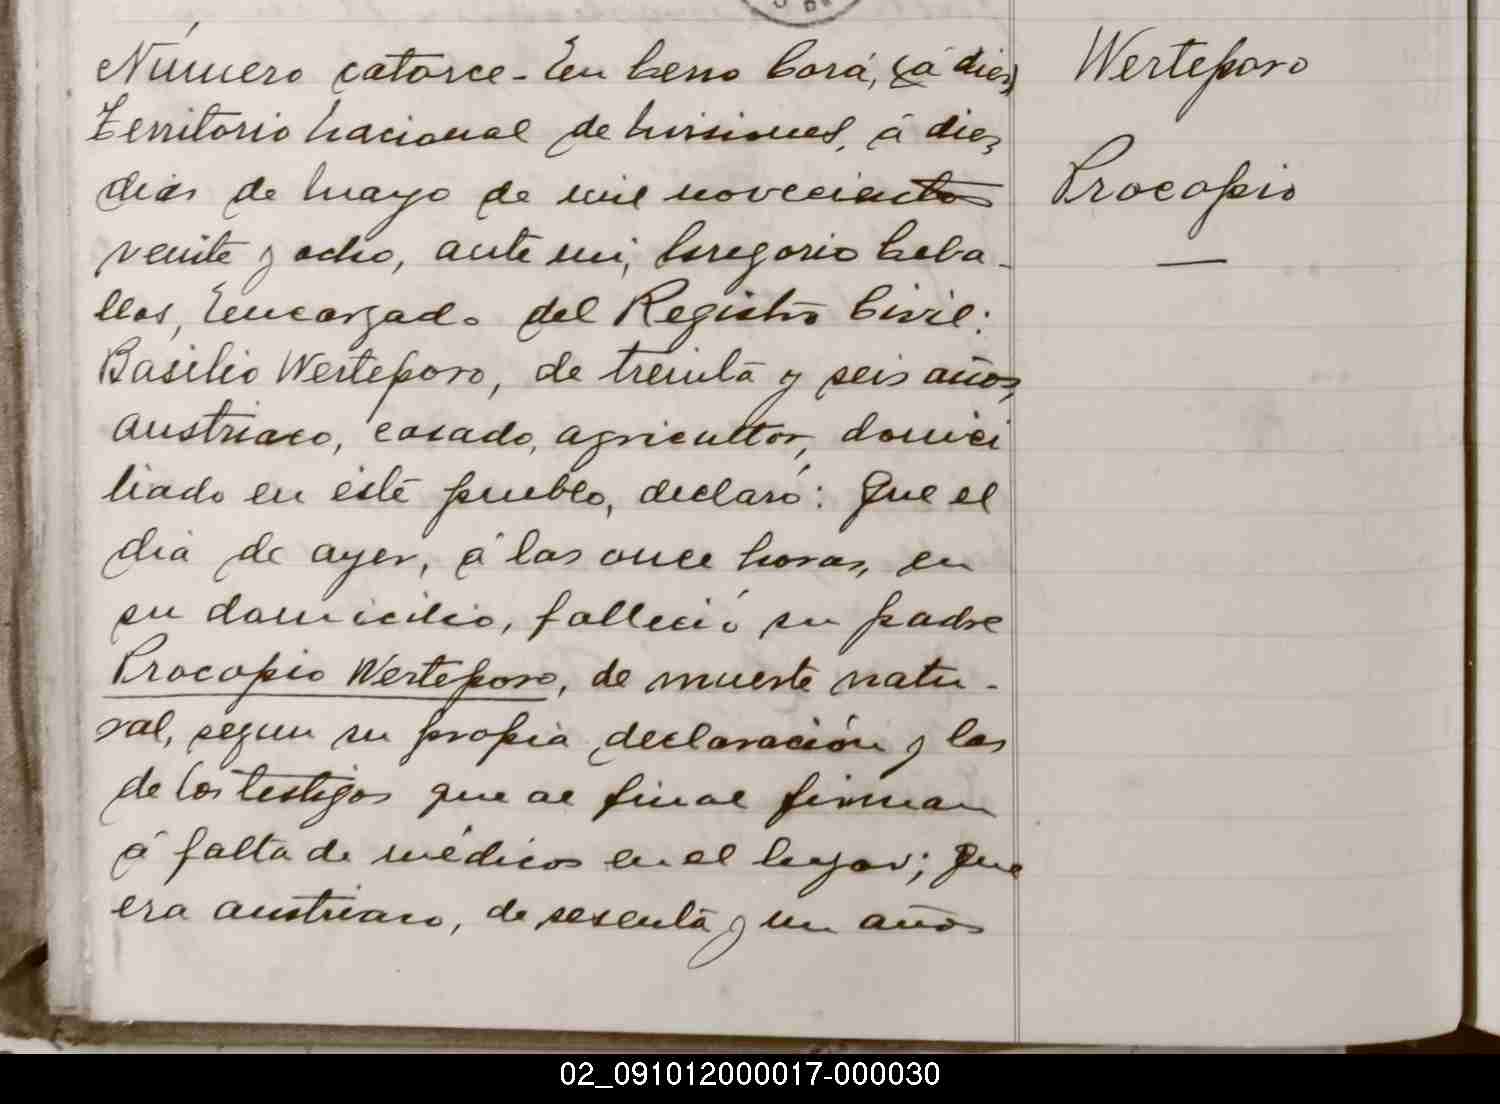 Número catorce - En Cerro Corá, (á diez)
Territorio Nacional de Misiones, á diez
dias de Mayo de mil novecientos
veinte y ocho, ante mi, Gregorio Ceba-
llos, Encargado del Registro Civil:
Basilio Werteporo, de treinta y seis años,
austriaco, casado, agricultor, domici
liado en este pueblo, declaró: Que el
dia de ayer, á las once horas, en
su domicilio, falleció su padre
Procopio Werteporo, de muerte natu-
ral, segun su propia declaración y las
de los testigos que al final firman
á falta de médicos en el lugar; Que
era austriaco, de sesenta y un años
Werteporo
Procopio
02_091012000017-000030